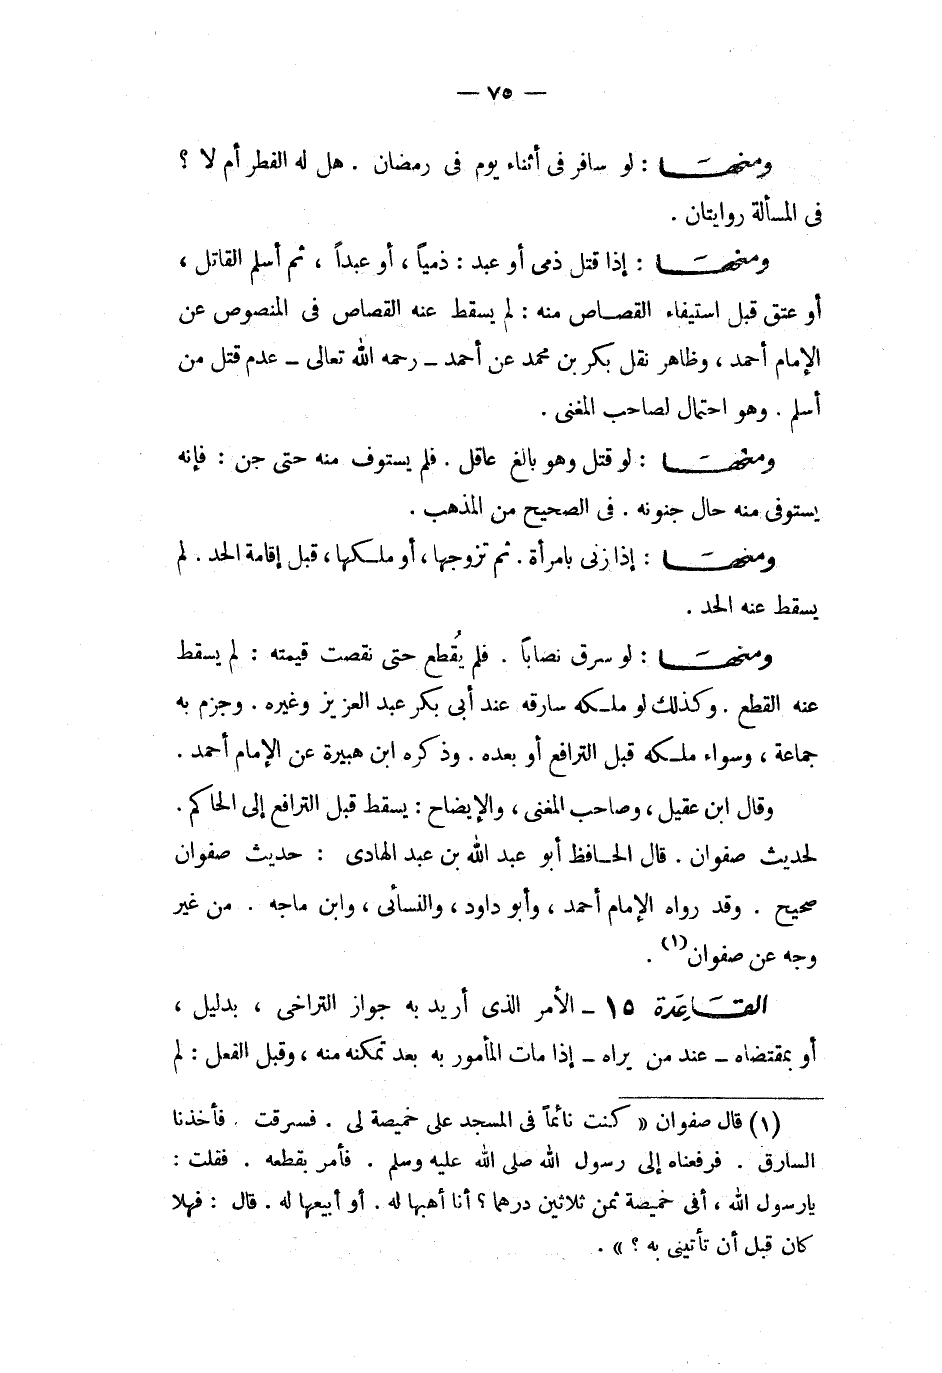 — ٧٥ —
ومنهـــا : لو سافر فى أثناء يوم فى رمضان . هل له الفطر أم لا ؟
فى المسألة روايتان .
ومنهـــا : إذا قتل ذمى أو عبد : ذمياً ، أو عبداً ، ثم أسلم القاتل ،
أو عتق قبل استيفاء القصـاص منه : لم يسقط عنه القصاص فى المنصوص عن
الإمام أحمد ، وظاهر نقل بكر بن محمد عن أحمد ــ رحمه الله تعالى ــ عدم قتل من
أسلم . وهو احتمال لصاحب المغنى .
ومنهـــا : لو قتل وهو بالغ عاقل . فلم يستوف منه حتى جن : فإنه
يستوفى منه حال جنونه . فى الصحيح من المذهب .
ومنهـــا : إذا زنى بامرأة . ثم تزوجها ، أو ملـكها ، قبل إقامة الحد . لم
يسقط عنه الحد .
ومنهـــا : لو سرق نصاباً . فلم يُقطع حتى نقصت قيمته : لم يسقط
عنه القطع . وكذلك لو ملـكه سارقه عند أبى بكر عبد العزيز وغيره . وجزم به
جماعة ، وسواء ملـكه قبل الترافع أو بعده . وذكره ابن هبيرة عن الإمام أحمد .
وقال ابن عقيل ، وصاحب المغنى ، والإيضاح : يسقط قبل الترافع إلى الحاكم .
لحديث صفوان . قال الحـافظ أبو عبد الله بن عبد الهادى : حديث صفوان
صحيح . وقد رواه الإمام أحمد ، وأبو داود ، والنسأئى ، وابن ماجه . من غير
وجه عن صفوان(١) .
القـــاعدة ١٥ ــ الأمر الذى أريد به جواز التراخى ، بدليل ،
أو بمقتضاه ــ عند من يراه ــ إذا مات المأمور به بعد تمكنه منه ، وقبل الفعل : لم
(١) قال صفوان « كنت نائماً فى المسجد على خميصة لى . فسرقت . فأخذنا
السارق . فرفعناه إلى رسول الله صلى الله عليه وسلم . فأمر بقطعه . فقلت :
يارسول الله ، أفى خميصة ثمن ثلاثين درهما ؟ أنا أهبها له . أو أبيعها له . قال : فهلا
كان قبل أن تأتينى به ؟ » .